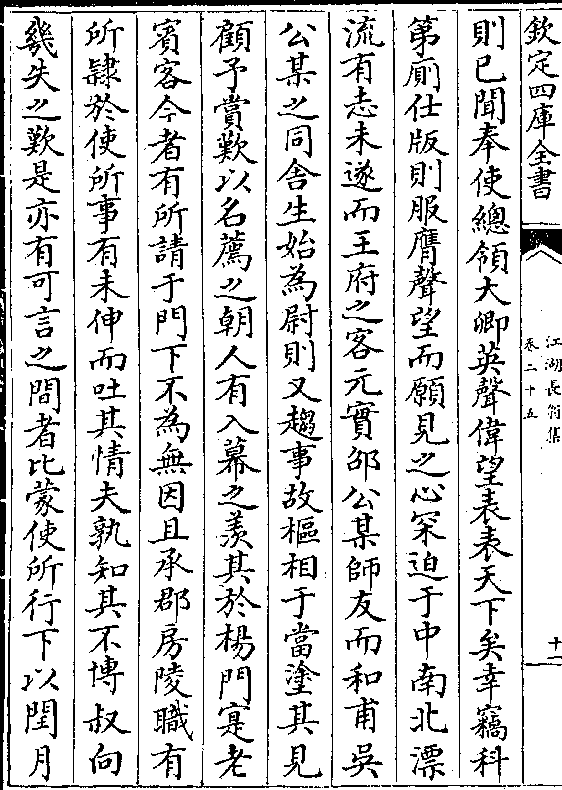 欽定四庫全書
江湖長翁集
卷二十五
十二
則已聞奉使總領大卿英聲偉望表表天下矣幸竊科
第廁仕版則服膺聲望而願見之心罙迫于中南北漂
流有志未遂而王府之客元實邵公某師友而和甫吳
公某之同舍生始為尉則又趨事故樞相于當塗其見
顧予賞歎以名薦之朝人有入幕之羨其於楊門寔老
賓客今者有所請于門下不為無因且承郡房陵職有
所隷於使所事有未伸而吐其情夫孰知其不博叔向
幾失之歎是亦有可言之間者比蒙使所行下以閏月